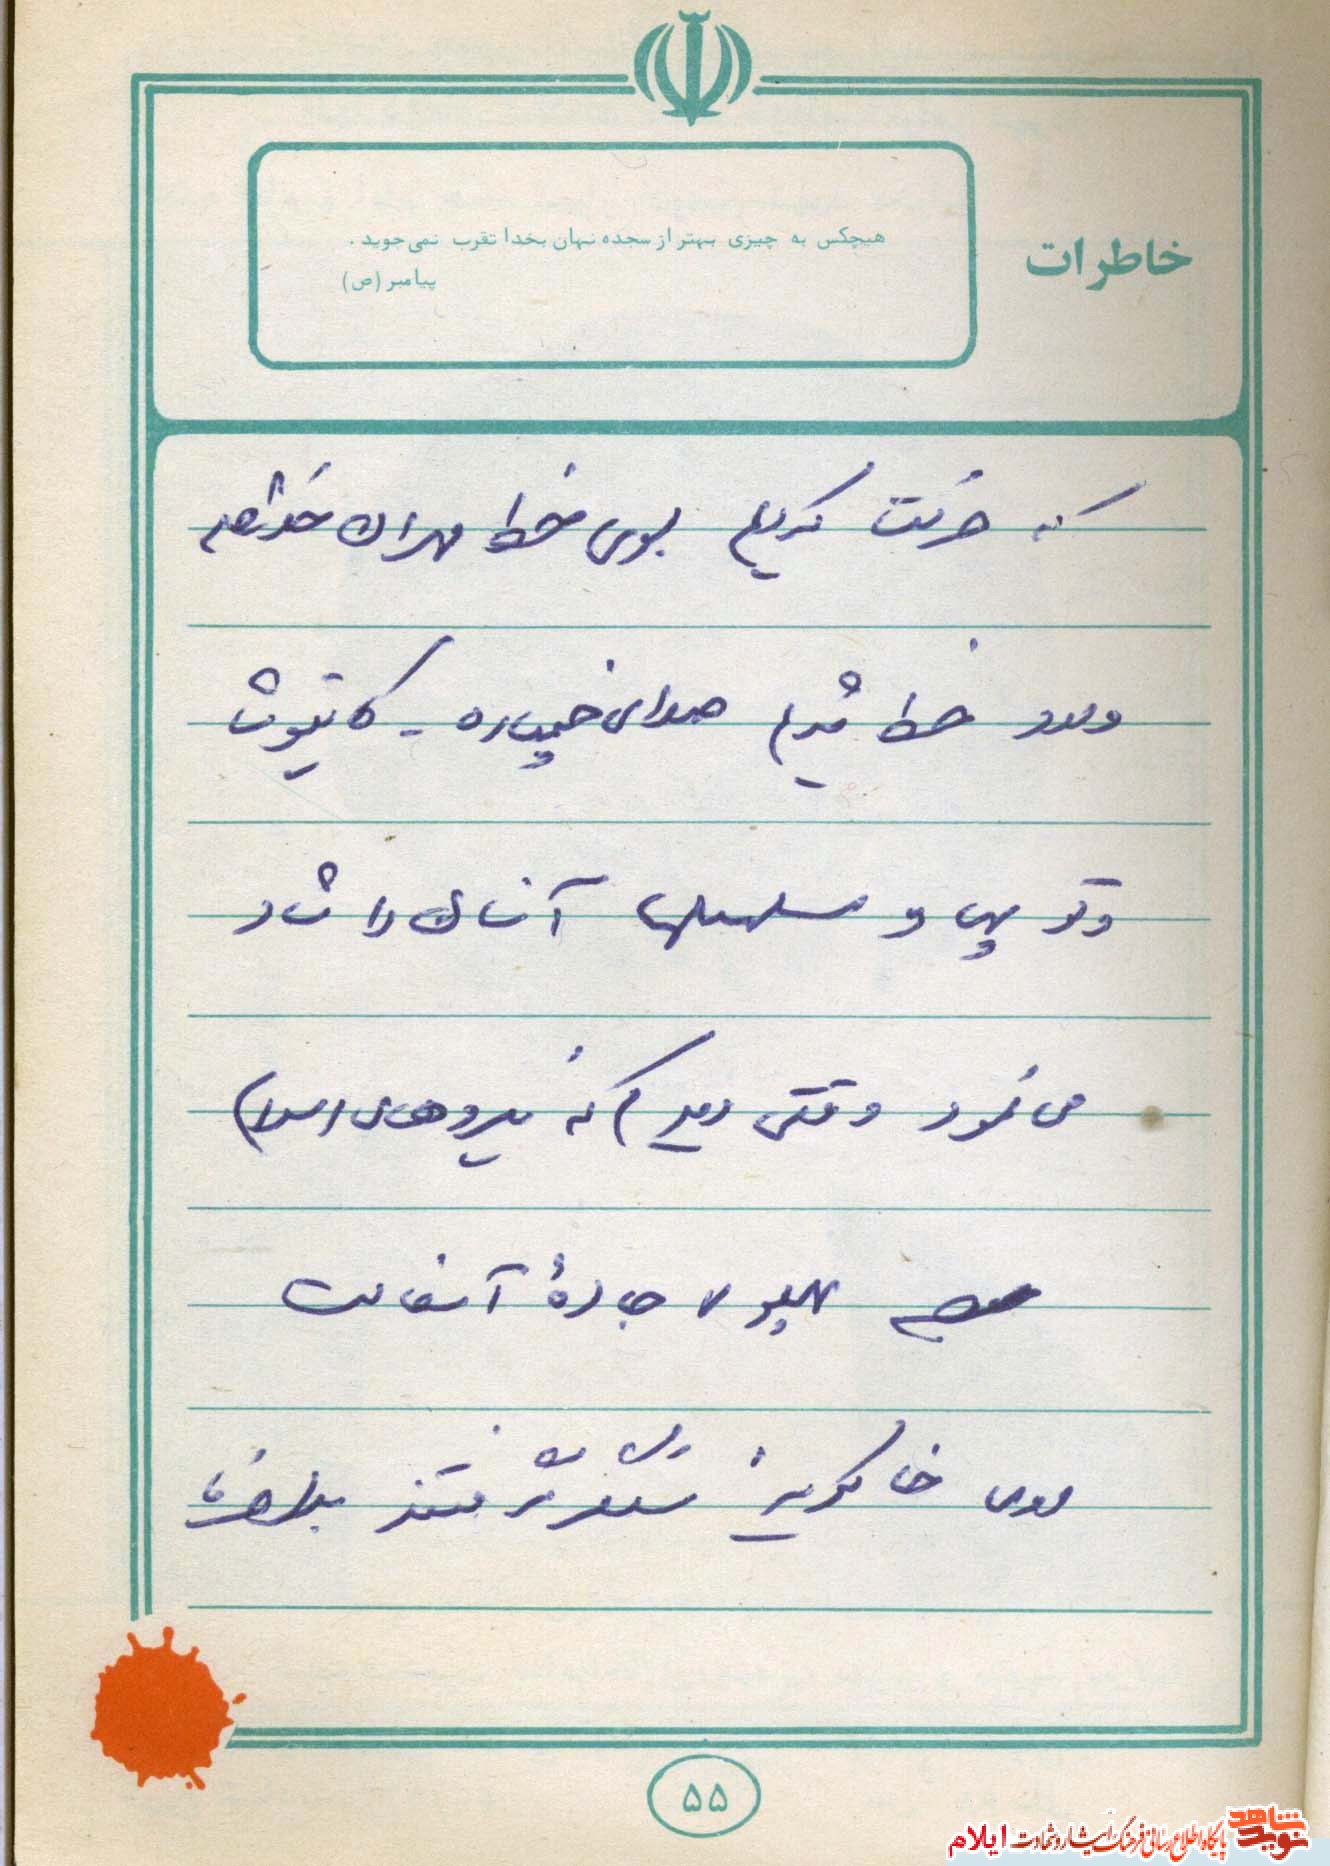 خاطرات
هیچکس به چیزی بهتر از سجده نهان بخدا تقرب نمی‌جوید.
پیامبر (ص)
که حرکت کردیم بسوی خط مهران
وارد خط شدیم صدای خمپاره - کاتیوشا
و توپ و مسلسلها آنسان را شاد
می نمود وقتی دیدم که نیروهای اسلام
بسوی جادهٔ آسفالت
روی خاکریز سنگر گرفتند
۵۵
نوید شاهد
پایگاه اطلاع رسانی فرهنگ ایثار و شهادت ایلام